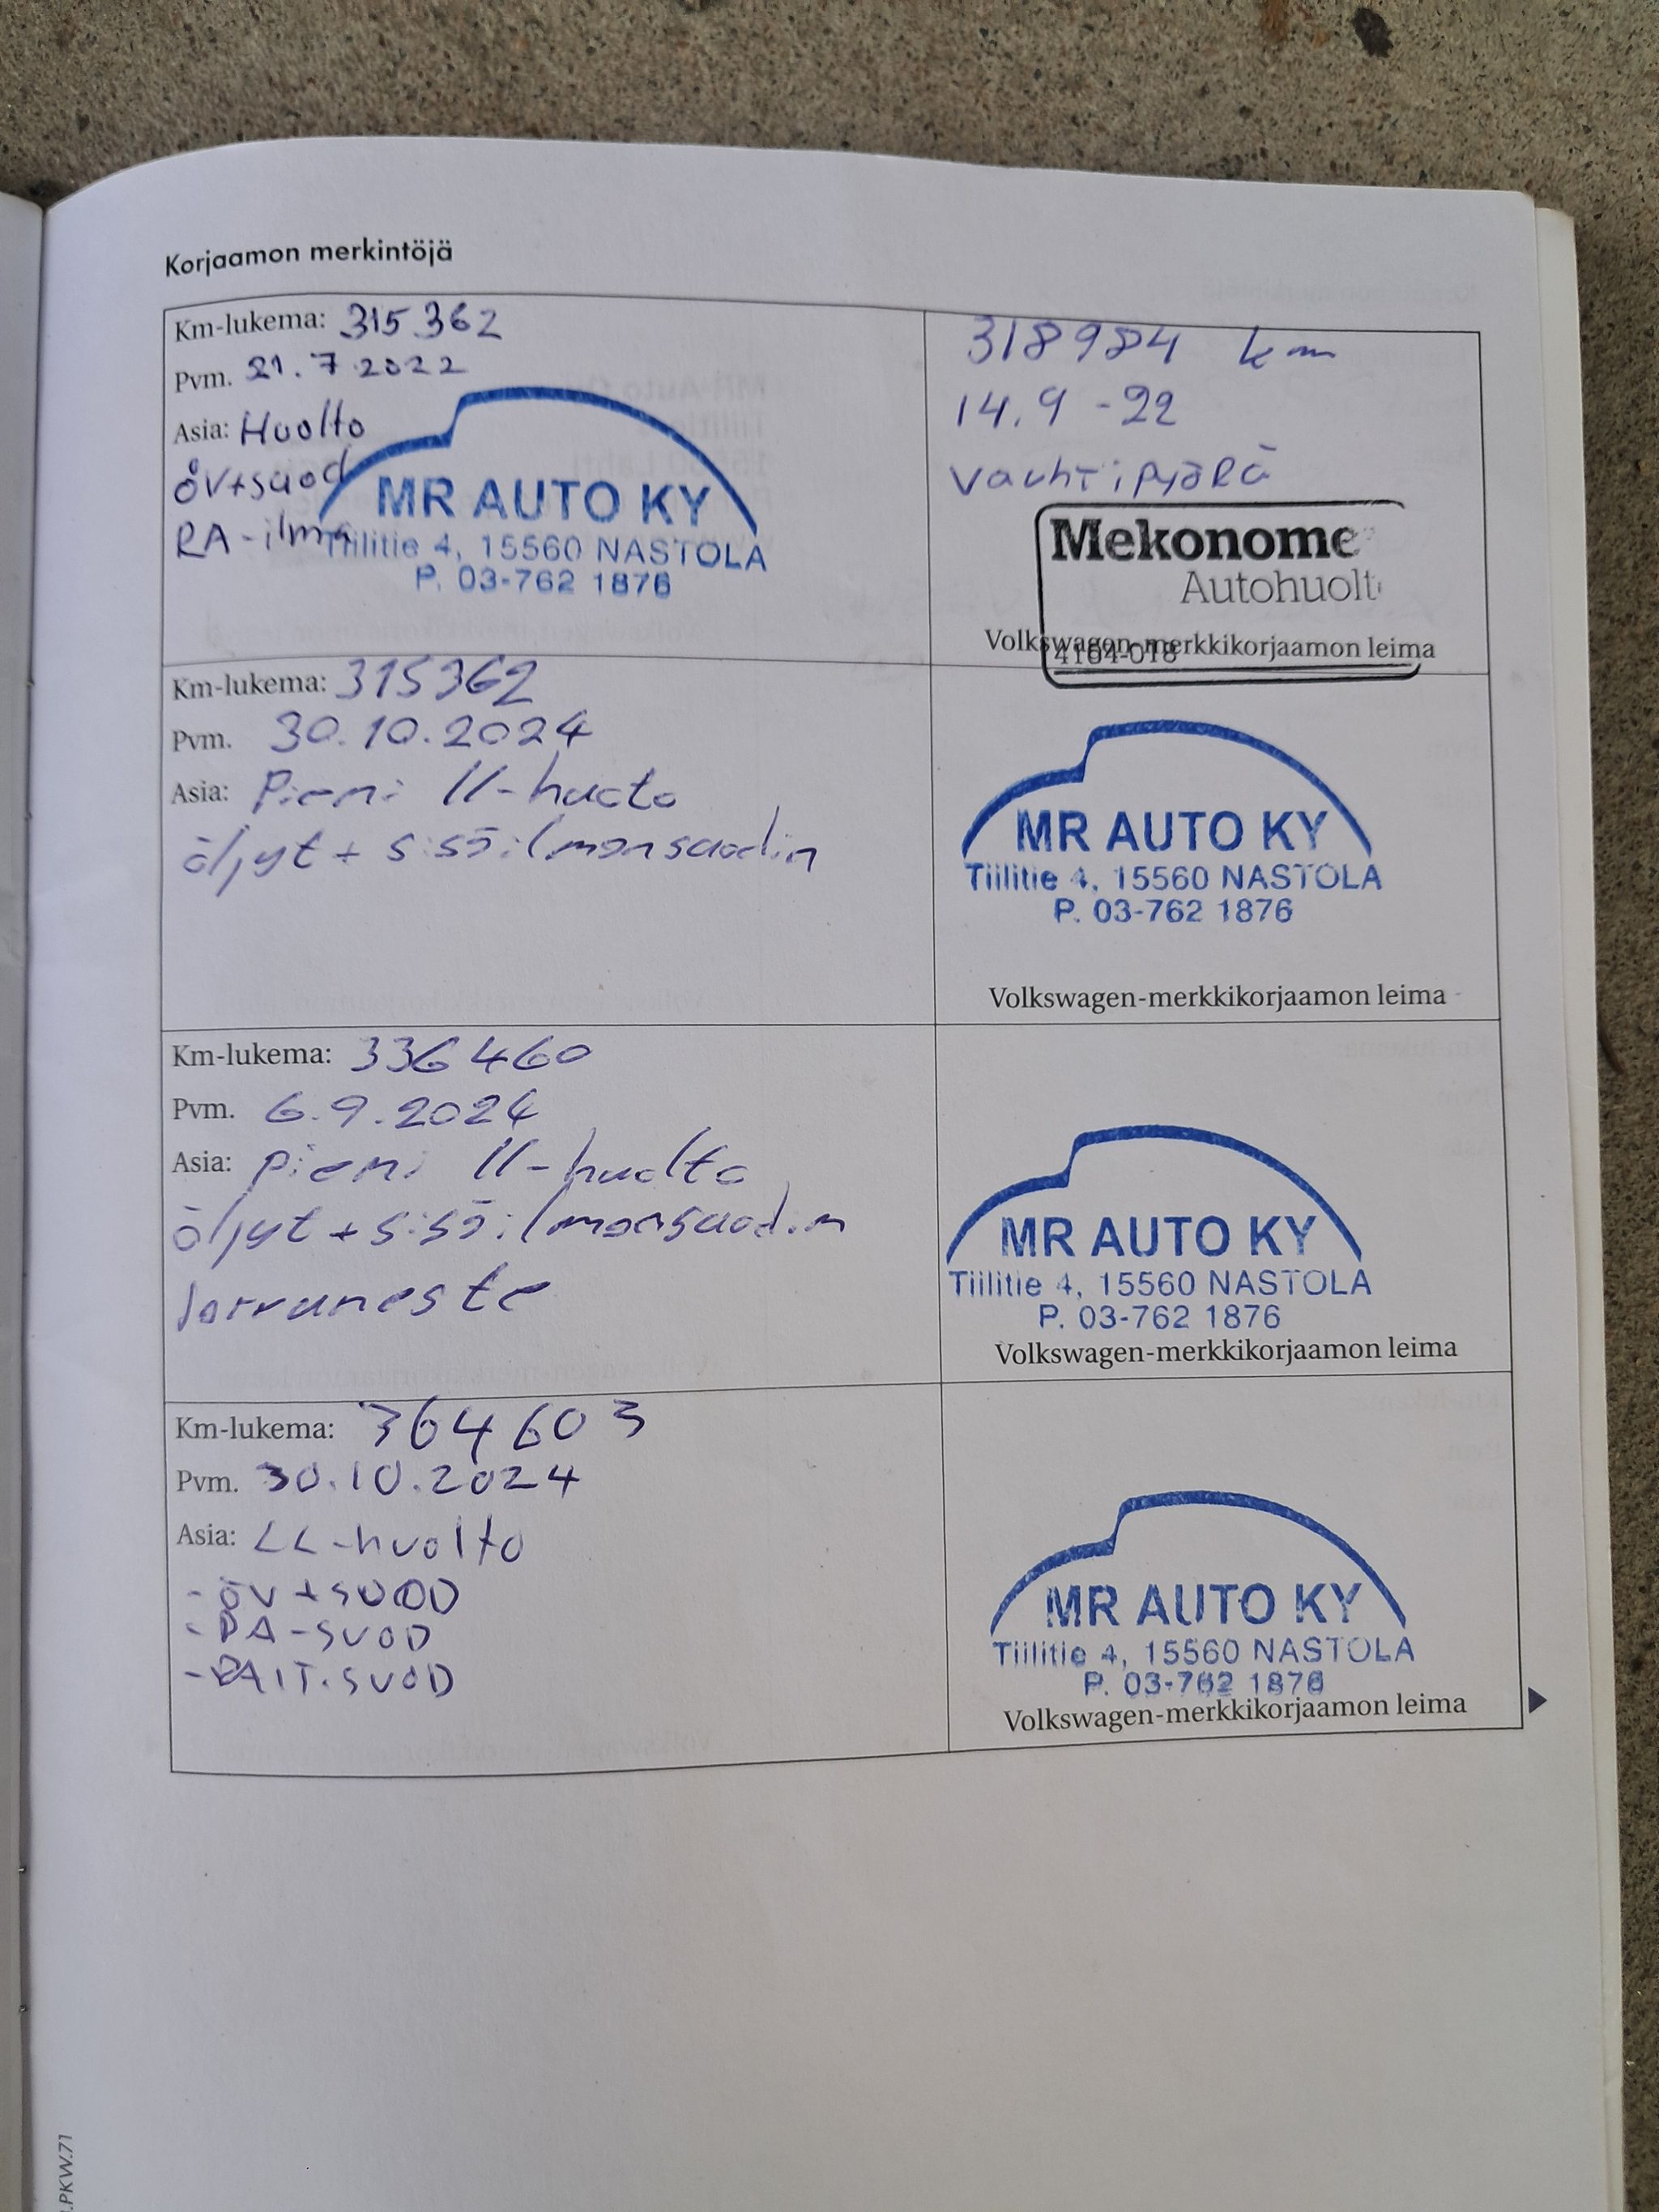 Korjaamon merkintöjä
Km-lukema: 315 362
Pvm. 21.7.2022
Asia: Huolto
öv+suod
RA-ilma
MR AUTO KY
Tiilitie 4, 15560 NASTOLA
P. 03-762 1876
318984 km
14.9 -22
vauhtipyörä
Mekonome
Autohuolt
4164-018
Volkswagen-merkkikorjaamon leima
Km-lukema: 315362
Pvm. 30.10.2024
Asia: Pieni ll-huoto
öljyt + sisäilmansuodin
MR AUTO KY
Tiilitie 4, 15560 NASTOLA
P. 03-762 1876
Volkswagen-merkkikorjaamon leima
Km-lukema: 336460
Pvm. 6.9.2024
Asia: Pieni ll-huolto
öljyt + sisäilmansuodin
Jarruneste
MR AUTO KY
Tiilitie 4, 15560 NASTOLA
P. 03-762 1876
Volkswagen-merkkikorjaamon leima
Km-lukema: 364603
Pvm. 30.10.2024
Asia: LL-huolto
- ÖV+SUOD
- RA-SUOD
- RAIT.SUOD
MR AUTO KY
Tiilitie 4, 15560 NASTOLA
P. 03-762 1876
Volkswagen-merkkikorjaamon leima
.PKW.71